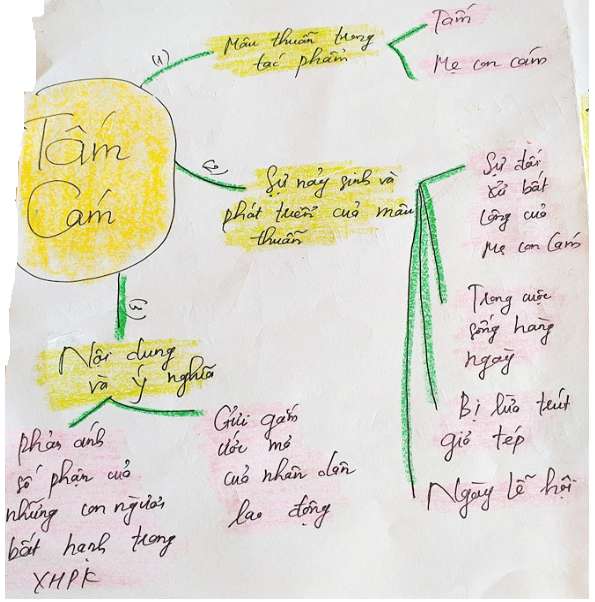 Tấm
Cám
(1)
Mâu thuẫn trong
tác phẩm
Tấm
Mẹ con cám
(2)
Sự nảy sinh và
phát triển của mâu
thuẫn
Sự đối
xử bất
công của
Mẹ con Cám
Trong cuộc
sống hàng
ngày
Bị lừa trút
giỏ tép
Ngày lễ hội
(3)
Nội dung
và ý nghĩa
phản ánh
số phận của
những con người
bất hạnh trong
XHPK
Gửi gắm
ước mơ
của nhân dân
lao động